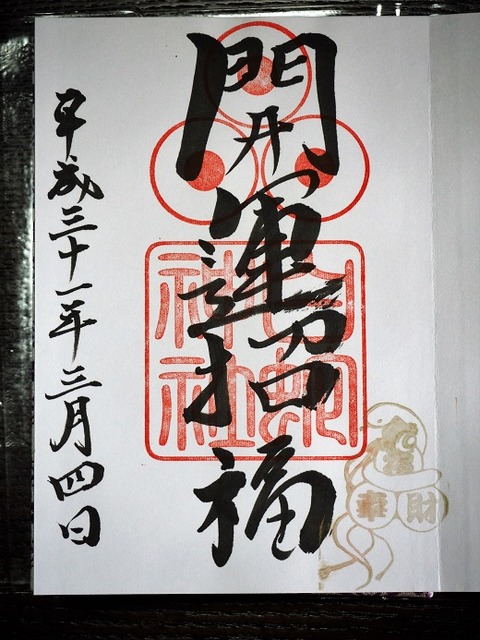 開運招福
白蛇
神社
財
平成三十一年三月四日